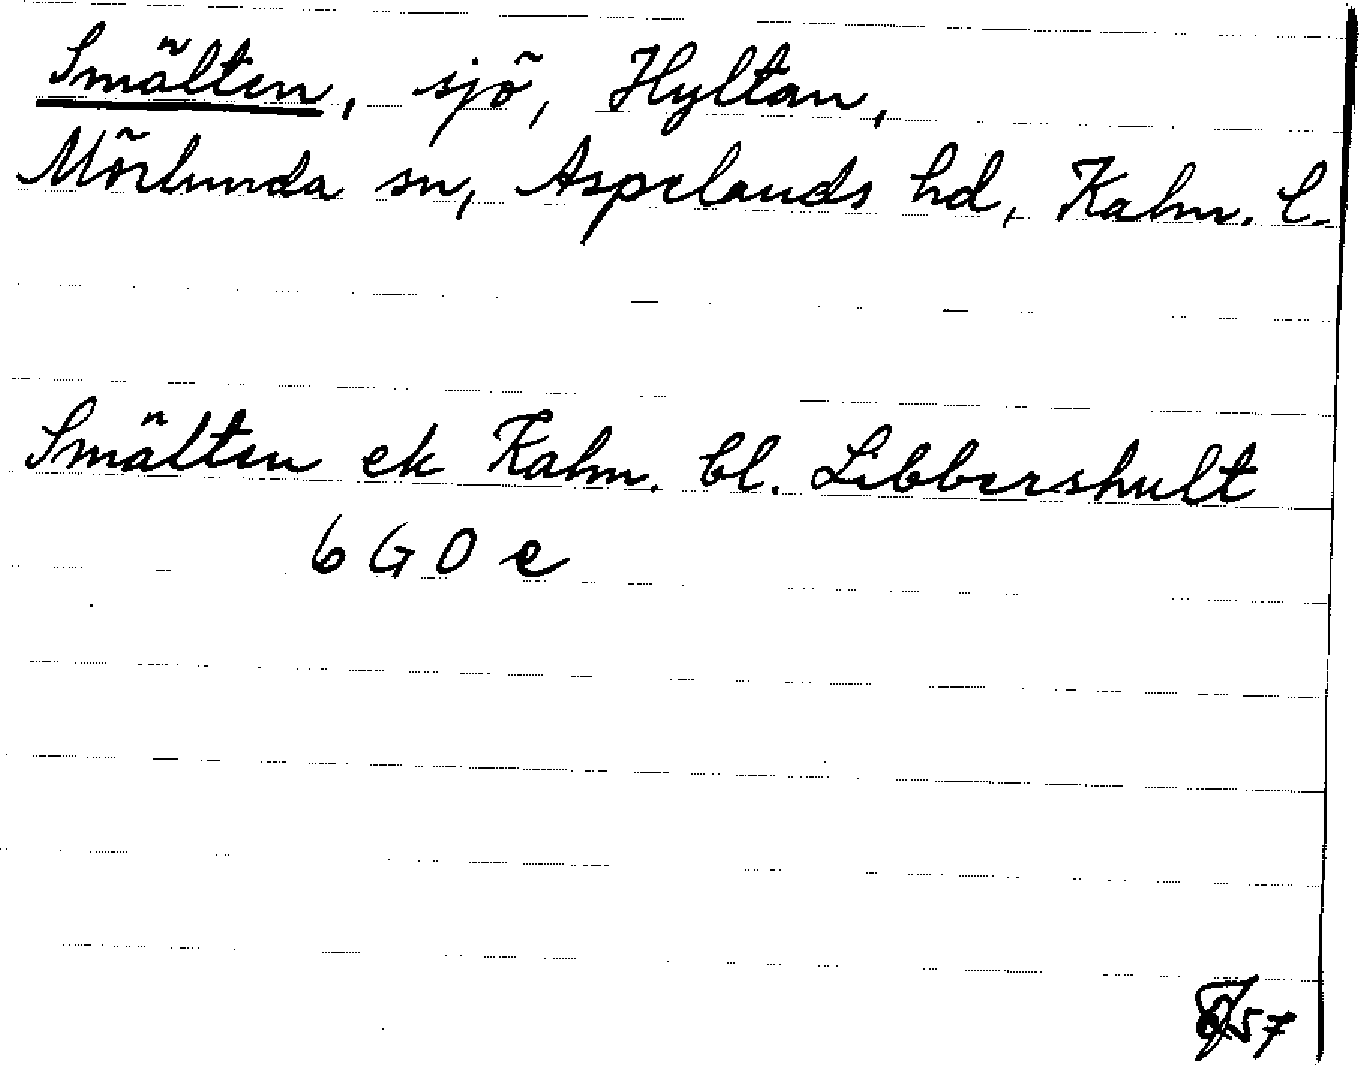 Smälten, sjö, Hyltan,
Mörlunda sn, Aspelands hd, Kalm. l.
Smälten ek Kalm. bl. Libbershult
6 G 0 e
57